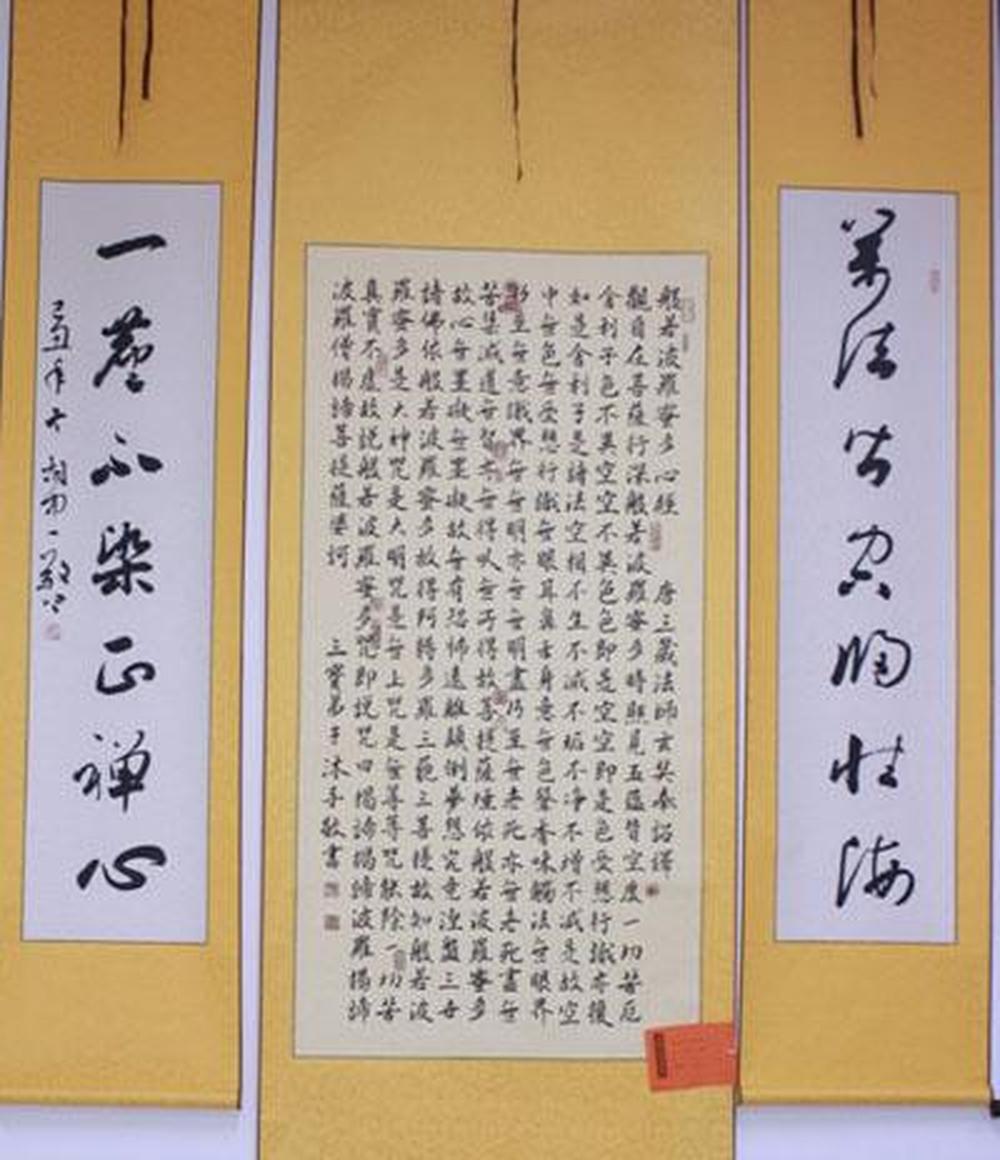 萬法皆空明性海
般若波羅蜜多心經 唐三藏法師玄奘奉詔譯
觀自在菩薩行深般若波羅蜜多時照見五蘊皆空度一切苦厄
舍利子色不異空空不異色色即是空空即是色受想行識亦復
如是舍利子是諸法空相不生不滅不垢不淨不增不減是故空
中無色無受想行識無眼耳鼻舌身意無色聲香味觸法無眼界
乃至無意識界無無明亦無無明盡乃至無老死亦無老死盡無
苦集滅道無智亦無得以無所得故菩提薩埵依般若波羅蜜多
故心無罣礙無罣礙故無有恐怖遠離顛倒夢想究竟涅槃三世
諸佛依般若波羅蜜多故得阿耨多羅三藐三菩提故知般若波
羅蜜多是大神咒是大明咒是無上咒是無等等咒能除一切苦
真實不虛故說般若波羅蜜多咒即說咒曰揭諦揭諦波羅揭諦
波羅僧揭諦菩提薩婆訶 三寶弟子沐手敬書
一塵不染正禪心
己丑年